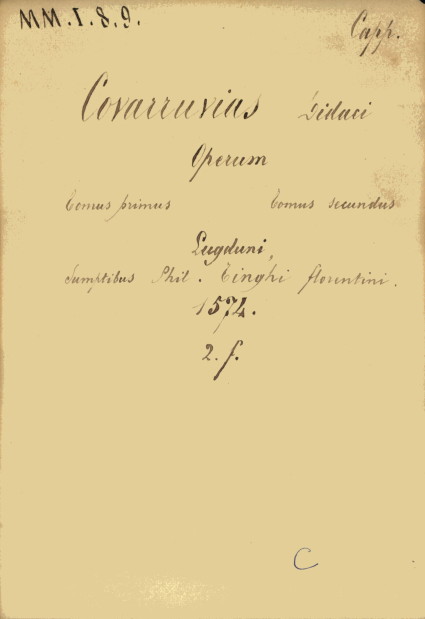 MM.I.8.9.
Capp.
Covarruvias Didaci
Operum
Tomus primus Tomus secundus
Lugduni,
Sumptibus Phil. Tinghi florentini.
1574.
2. f.
C